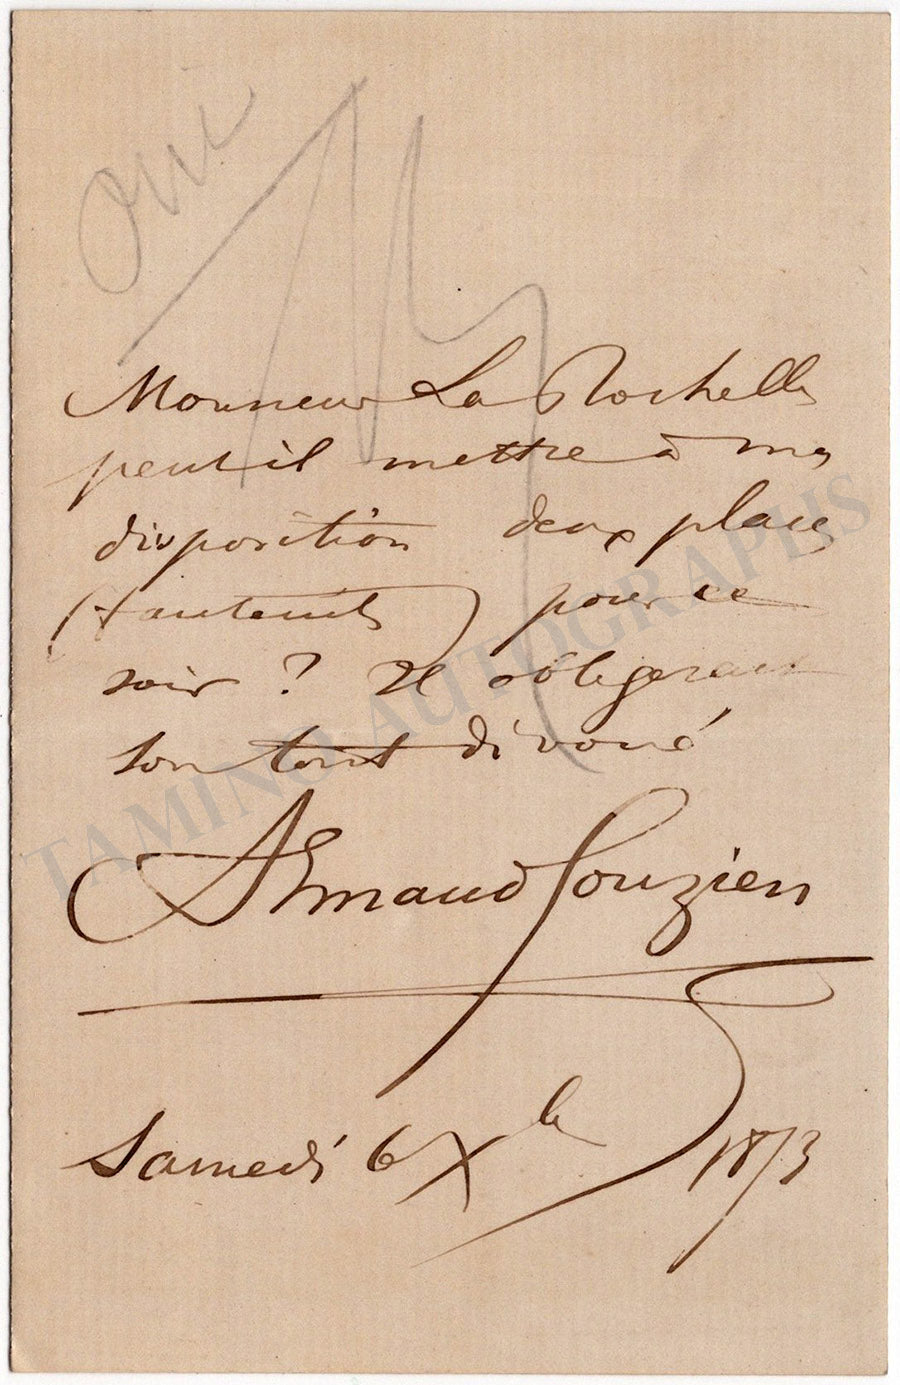 oui
Monsieur La Rochelle
peut il mettre à ma
disposition deux places
(fauteuils) pour ce
soir ? Il obligerait
son tout dévoué
Armand Gouzien
Samedi 6 Xbre 1873
TAMINO AUTOGRAPHS